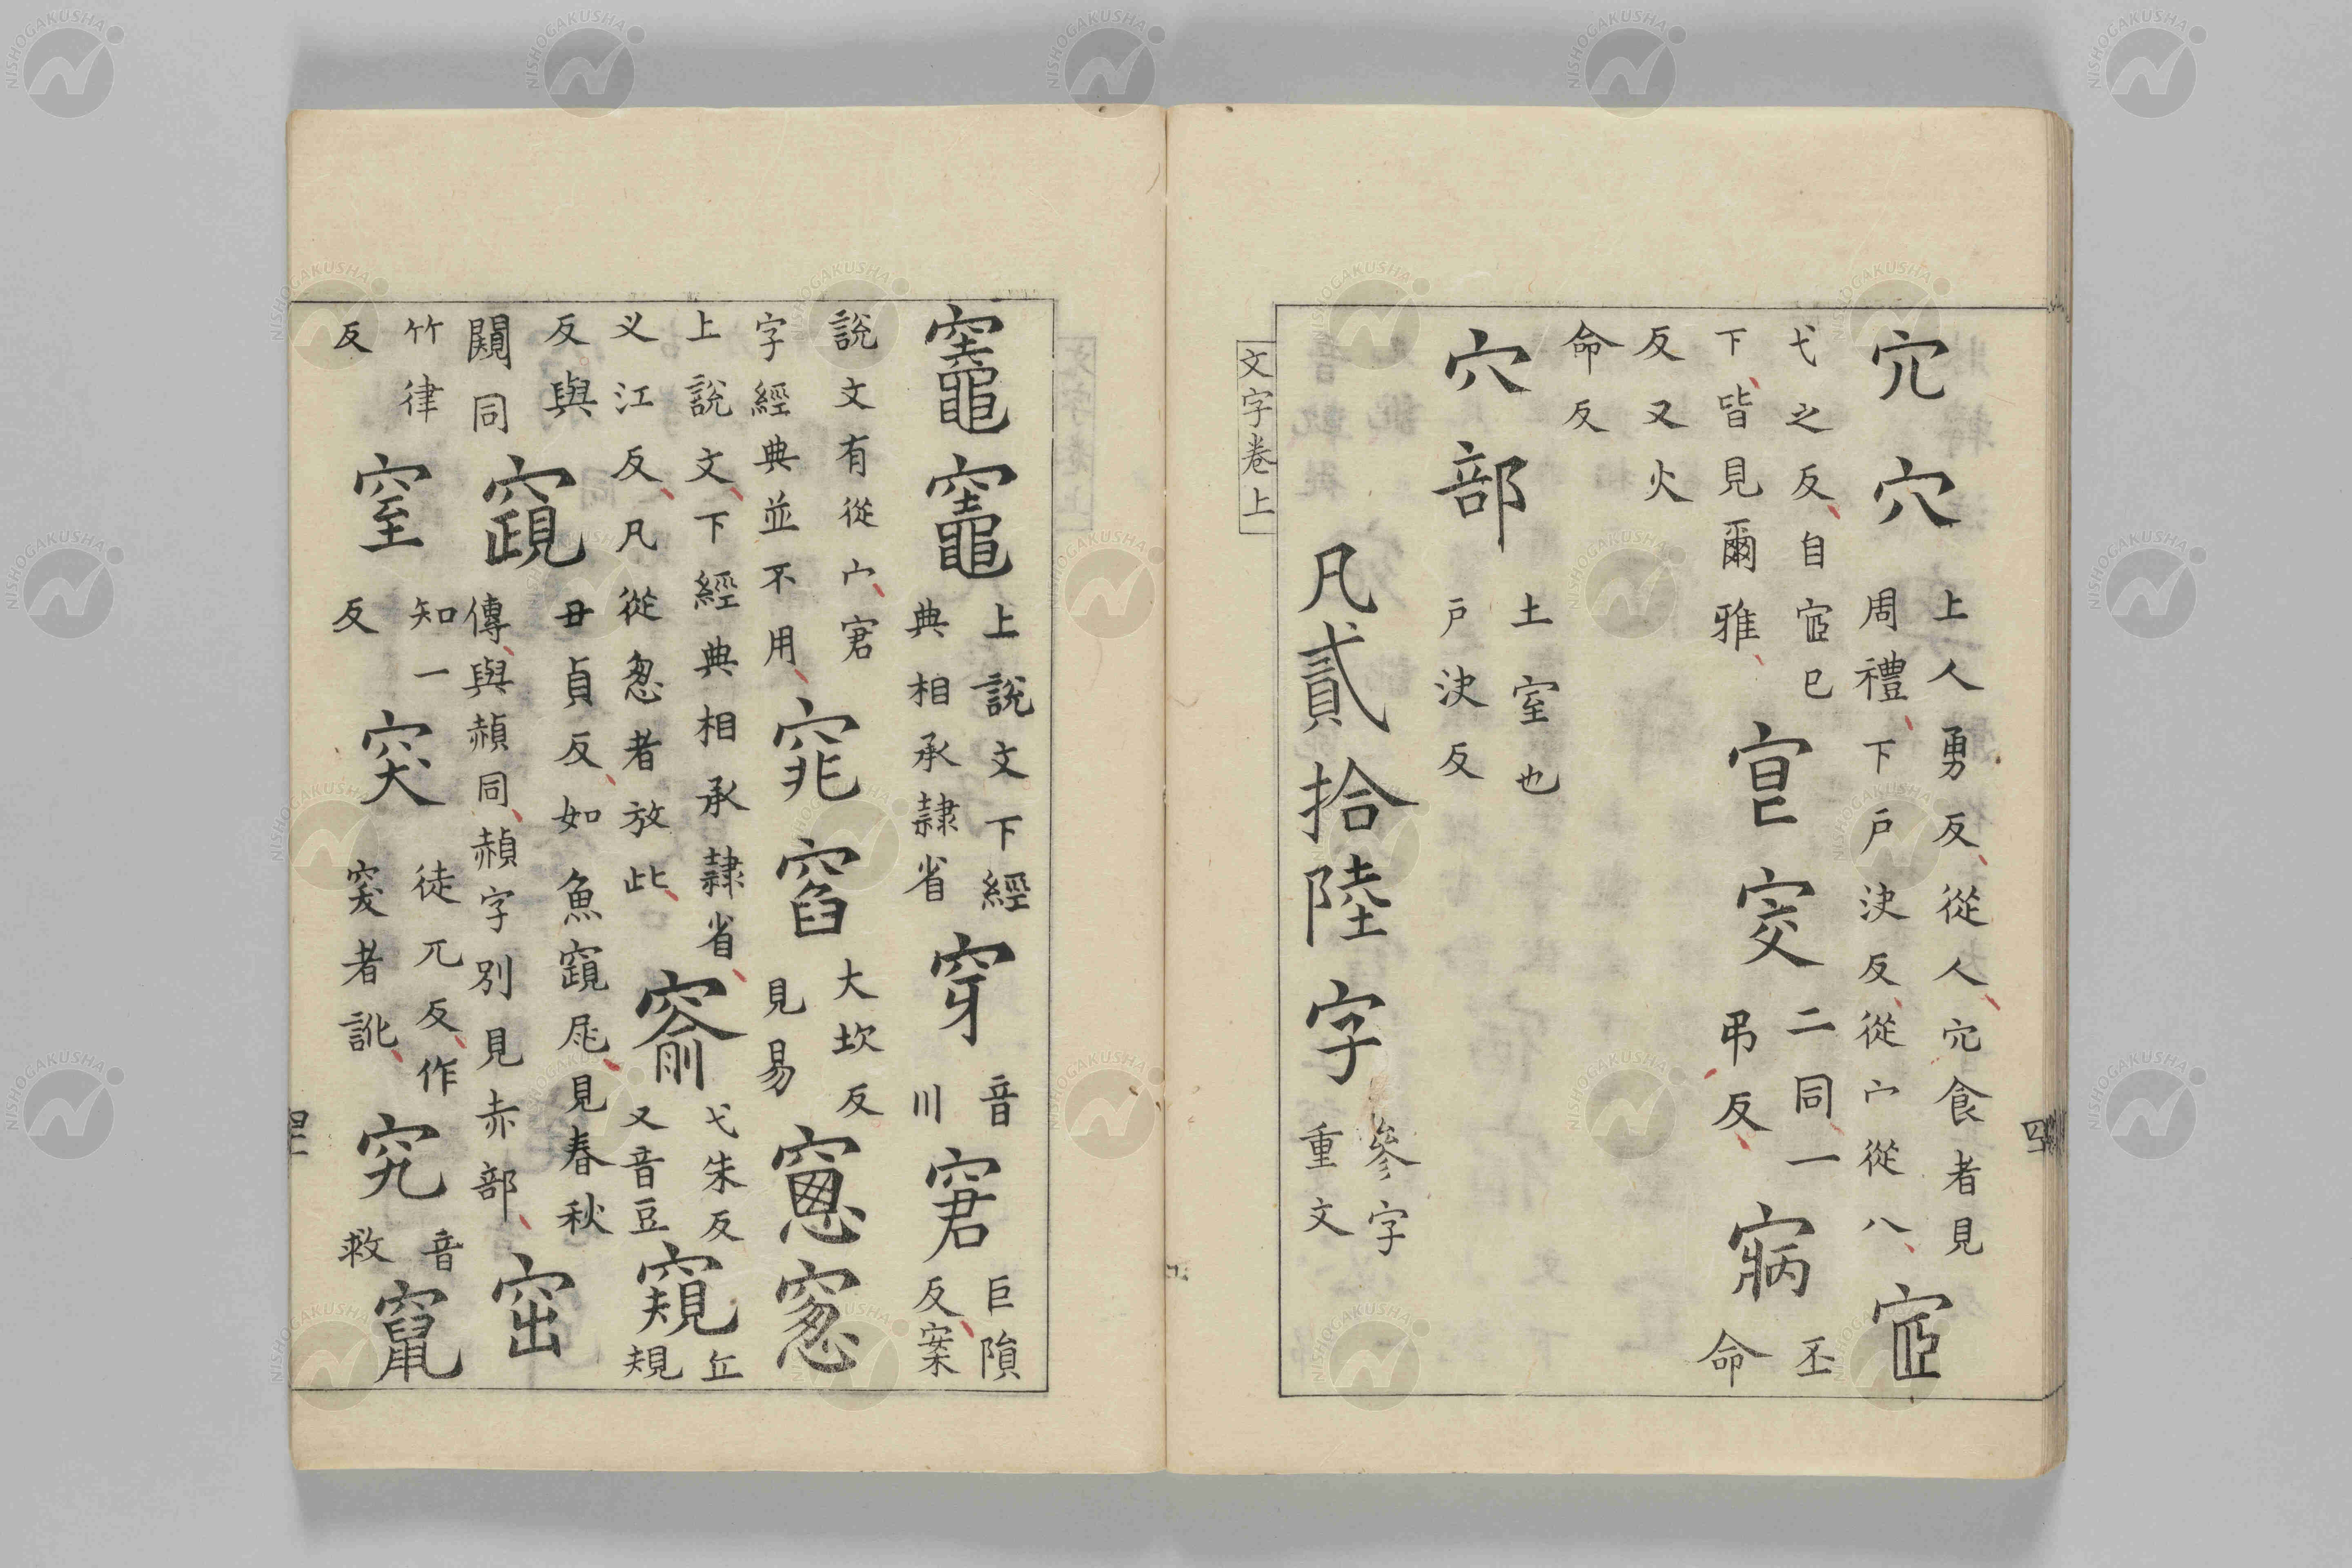 宂穴
上人勇反從人宂食者見
周禮下戸決反從宀從八
宧
弋之反自宧巳
下皆見爾雅
窅窔
二同一
弔反
寎
丕命
反又火
命反
穴部
土室也
戸決反
凡貳拾陸字
參字
重文
文字卷上
竈竈
上說文下經
典相承隷省
穿
音川
窘
巨隕
反案
說文有從宀窘
字經典並不用
窕窞
大坎反
見易
窻窓
上說文下經典相承隷省
义江反凡從怱者放此
窬
弋朱反
又音豆
窺
丘規
反與
闚同
窺
丑貞反如魚窺尾見春秋
傳與赬同赬字別見赤部
窋
竹律
反
窒
知一
反
突
徒兀反作
突者訛
究
音救
竄
NISHOGAKUSHA